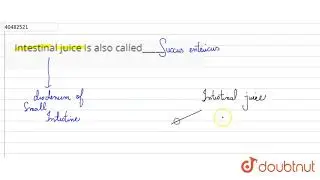 40482521
Intestinal juice is also called____Succus entericus
duodenum of
Small
Intestine
Intestinal juice
doubtnut